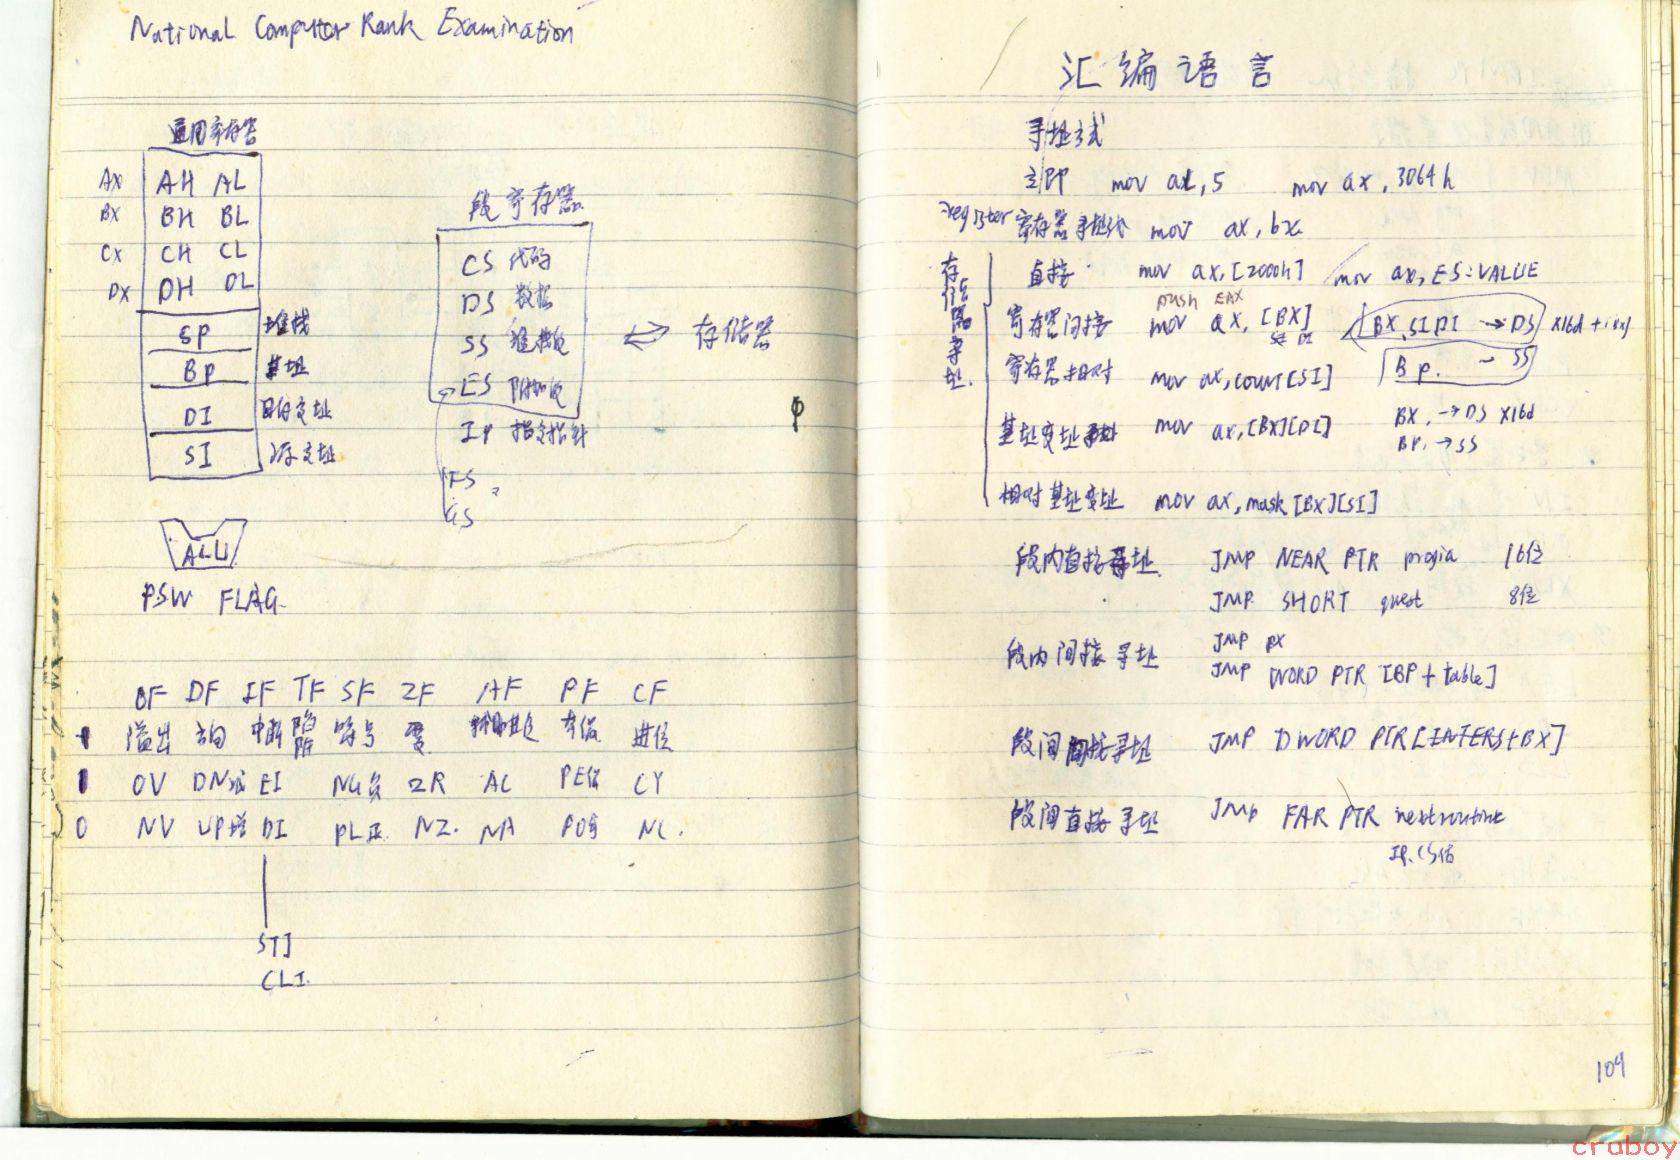 National Computer Rank Examination
通用寄存器
AX AH AL
BX BH BL
CX CH CL
DX DH DL
SP 堆栈
BP 基址
DI 目的变址
SI 源变址
段寄存器
CS 代码
DS 数据
SS 堆栈段
ES 附加段
IP 指令指针
FS
GS
⇔ 存储器
φ
ALU
PSW FLAG
OF DF IF TF SF ZF AF PF CF
溢出 方向 中断 陷阱 符号 零 辅助进位 奇偶 进位
1 OV DN减 EI NG负 ZR AC PE偶 CY
0 NV UP增 DI PL正 NZ. NA PO奇 NC.
STI
CLI
汇编语言
寻址方式
立即 mov al,5 mov ax,3064h
register 寄存器寻址 mov ax,bx
存储器寻址
直接 mov ax,[2000h] mov ax,ES:VALUE
push EAX
寄存器间接 mov ax,[BX] BX,SI,DI → DS X16d +
SI DI
寄存器相对 mov ax,count[SI] Bp. → SS
基址变址 mov ax,[BX][DI] BX. → DS X16d
BP. → SS
相对基址变址 mov ax,mask[BX][SI]
段内直接寻址. JMP NEAR PTR progia 16位
JMP SHORT quest 8位
段内间接寻址 JMP BX
JMP WORD PTR [BP+table]
段间间接寻址 JMP DWORD PTR[INTERS+BX]
段间直接寻址 JMP FAR PTR nextroutint
IP.CS
109
cruboy